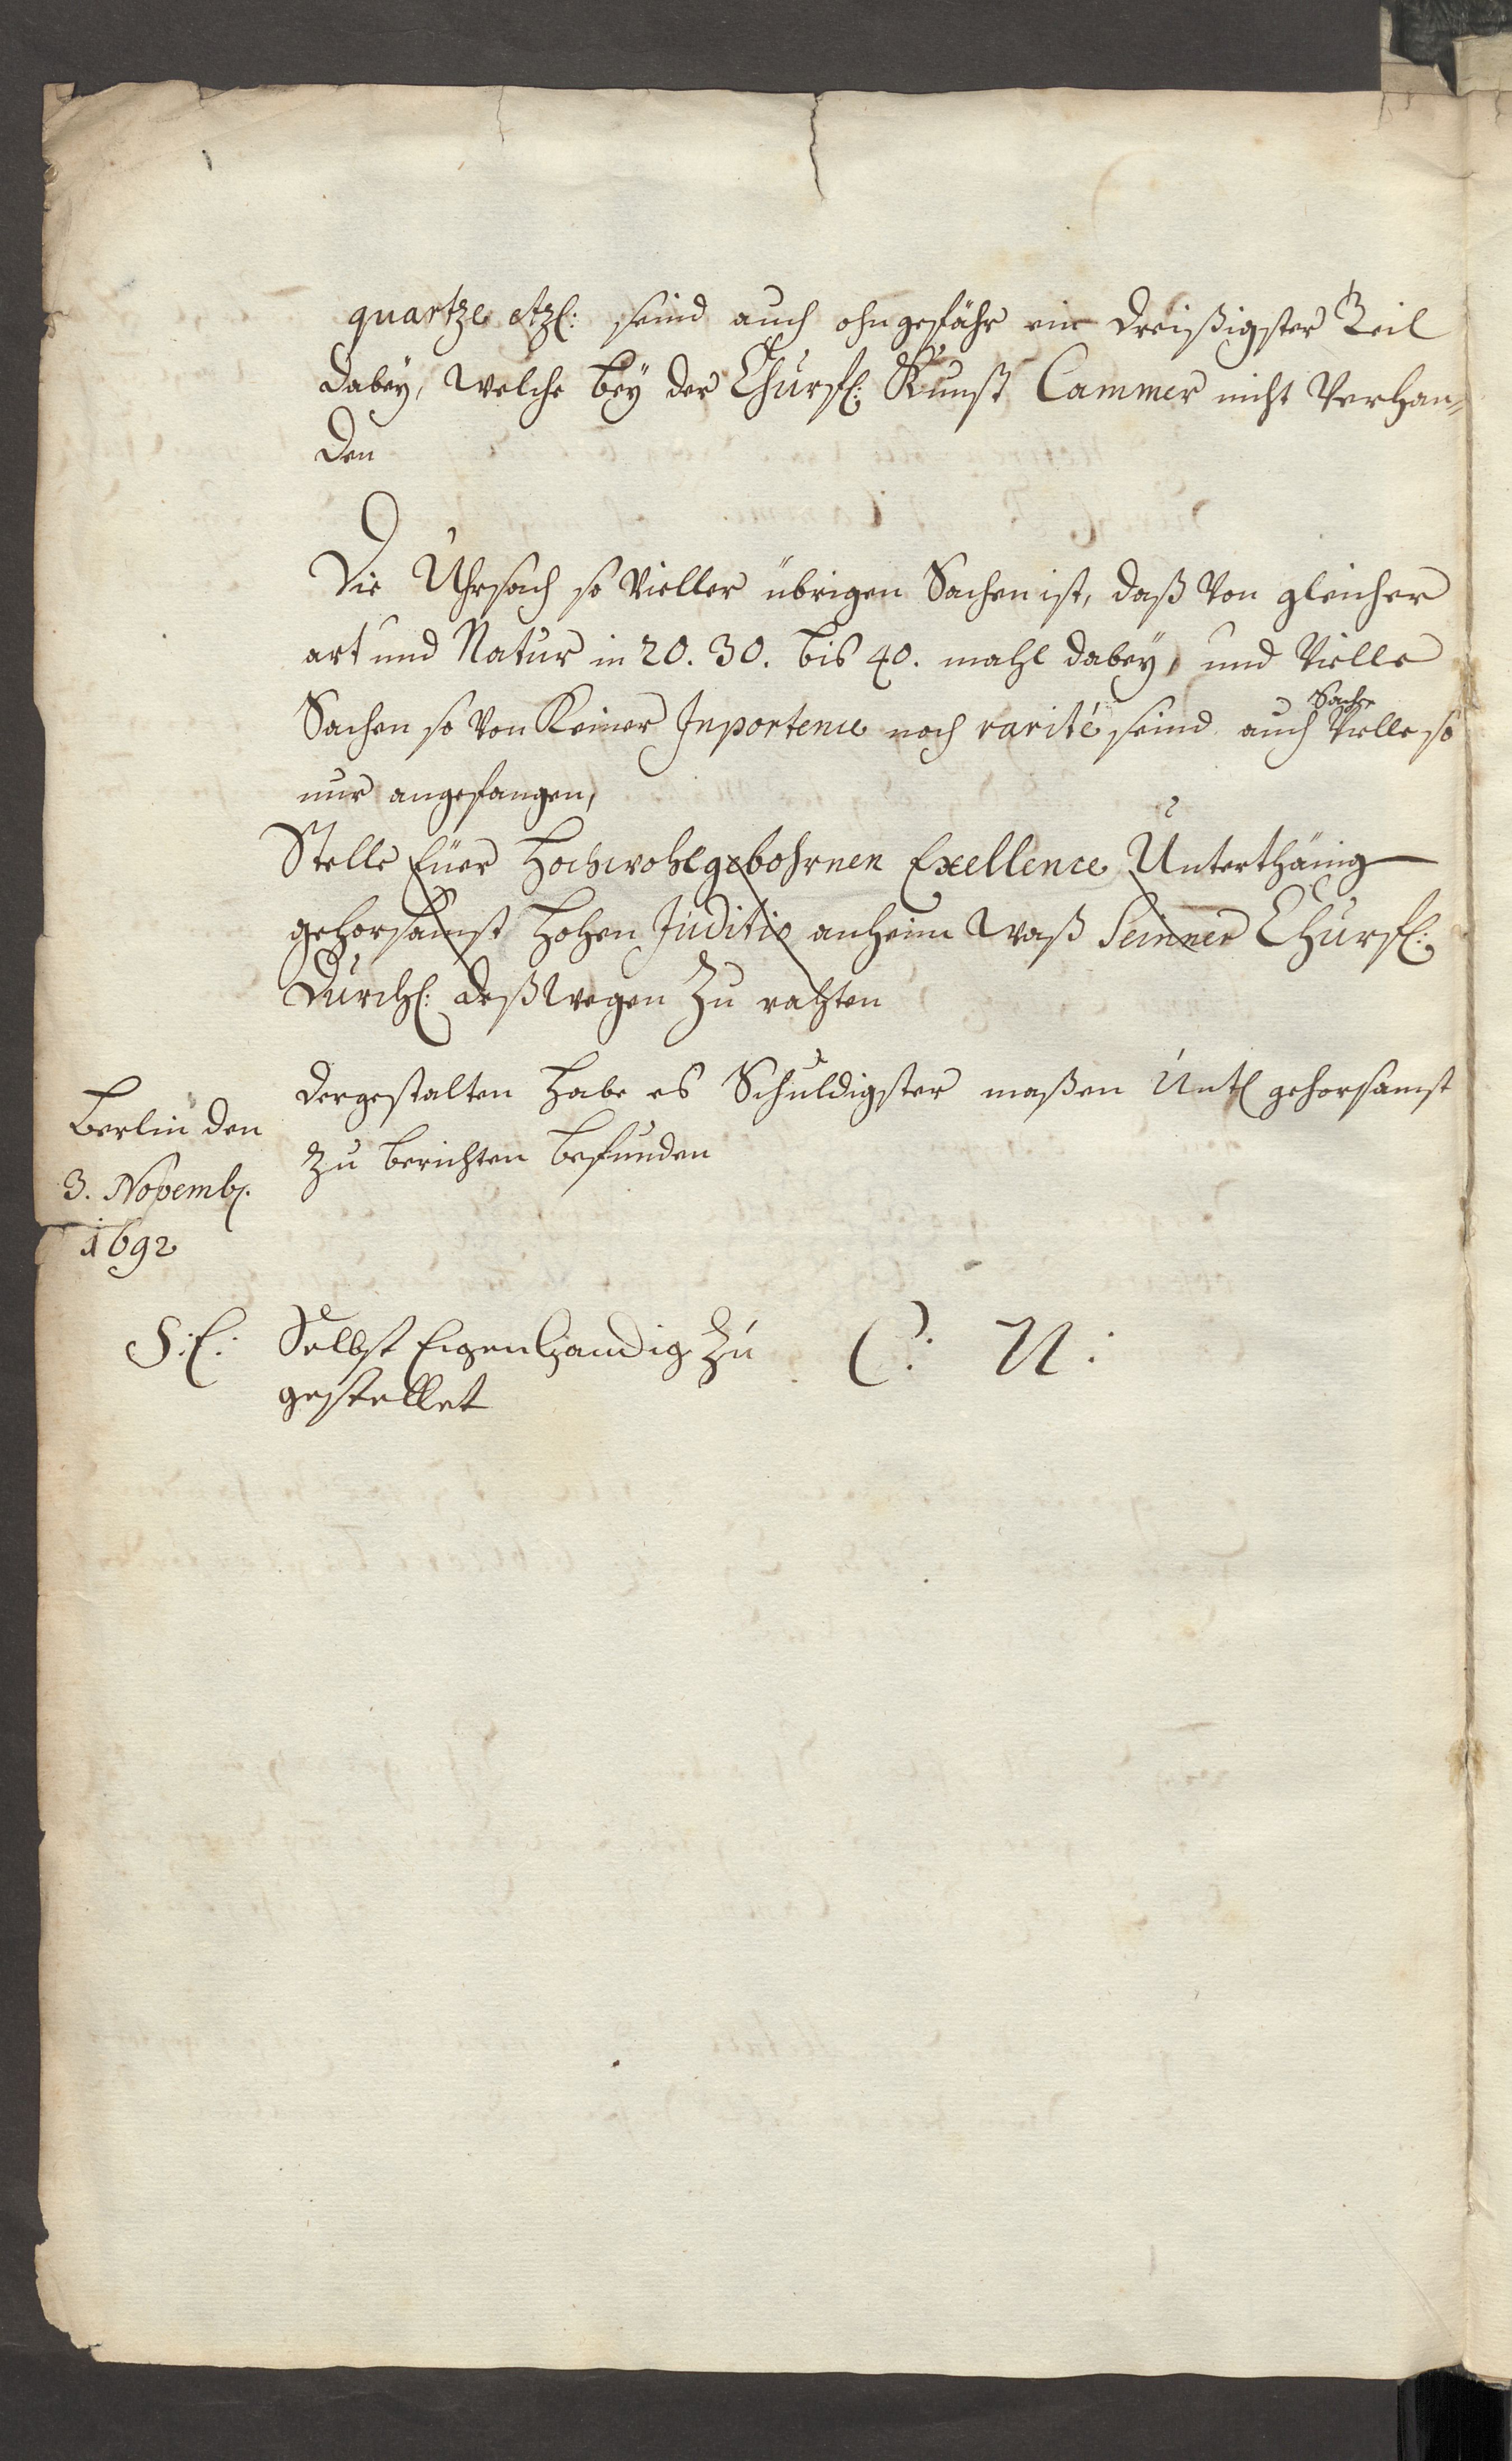 quartze etz: seind auch ohngefähr ein dreißigster Teil
dabeÿ, welche beÿ der Churfl: Kunst Cammer nicht Verhan„
den
Die Uhrsach so Vieller übrigen Sachen ist, daß Von gleicher
art und Natur in 20. 30. bis 40. mahl dabeÿ, und Vielle
Sachen so Von Keiner Inportence noch rarité seind auch Vielle Sache so
nur angefangen,
Stelle Euer Hochwohlgebohrnen Exellence Unterthänig
gehorsamst hohen Juditio anheim waß Seinner Churfl:
Durchl: deßwegen Zu rahten
dergestalten habe es Schuldigster maßen Untl gehorsamst
Zu berichten befunden
Berlin den
3. Novemb.
1692
S: E: Selbst Eigenhändig Zu
gestellet
C: U: